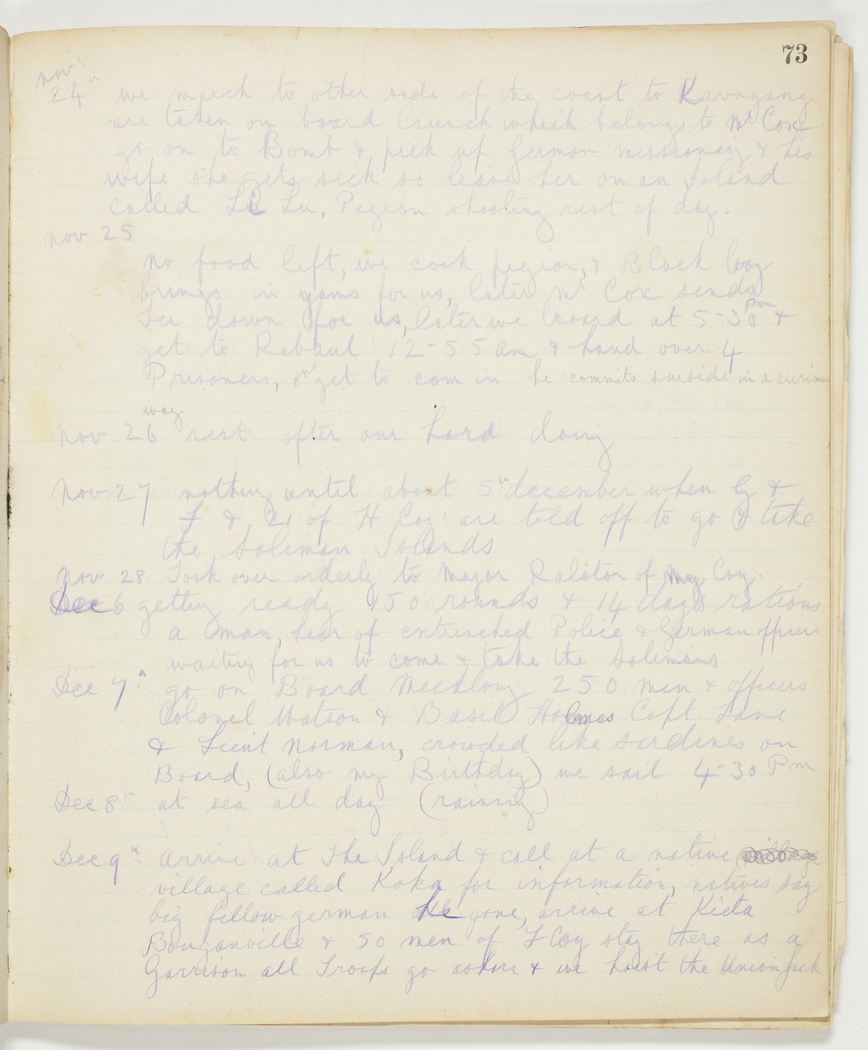 73
Nov
24 we march to other side of the coast to Kavagang
are taken on board launch which belongs to Mr Cox
go on to Bomb & pick up German missionary & his
wife she gets sick so leave her on an Island
called Lu, Pegeon shooting rest of day.
Nov 25
No food left, we cook pegion, & Black boy
brings in yams for us, later Mr Cox sends
down for us, later we board at 5-30 pm &
get to Rabaul 12-55 am & hand over 4
Prisoners, get to com in he commits suiside in a curious
way
Nov 26 rest after our hard doing
Nov 27 nothing until about 5th december when G &
F & 21 of H Coy are told off to go & take
the Soliman Islands
Nov 28 Took over orderly to Major Ralston of my Coy.
Dec 6 getting ready 150 rounds & 14 days rations
a man, hear of entrenched Police & German officers
waiting for us to come & take the Solimans
Dec 7th go on Board Meeklong 250 men & officers
Colonel Watson & Basil Holmes Capt Lane
& Lieut Norman, crowded like sardines on
Board, (also my Birthday) we sail 4-30 Pm
Dec 8th at sea all day (raining)
Dec 9th Arrive at the Island & call at a native
village called Koka for information, natives say
big fellow german he gone, arrive at Kieta
Bouganville & 50 men of F Coy stay there as a
Garrison all Troops go ashore & we hoist the Union Jack